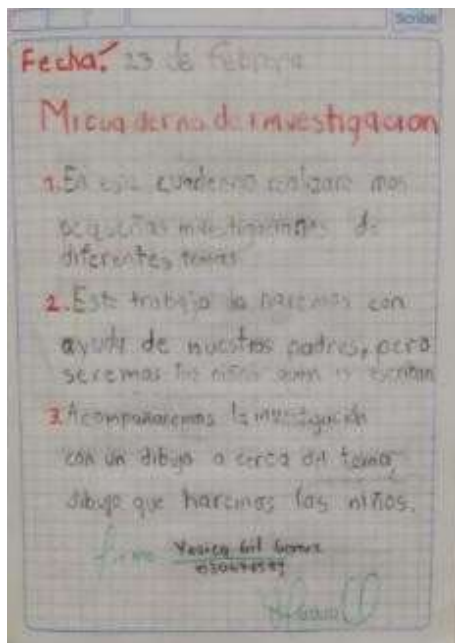 Scribe
Fecha: 23 de Febrero
Mi cuaderno de investigacion
1. En este cuaderno realizare mos
pequeñas investigaciones de
diferentes temas
2. Este trabajo lo haremos con
ayuda de nuestros padres, pero
seremos los niños quien
3. Acompañaremos la investigación
con un dibujo a cerca del tema,
dibujo que haremos los niños.
firma Yesica Gil Gomez